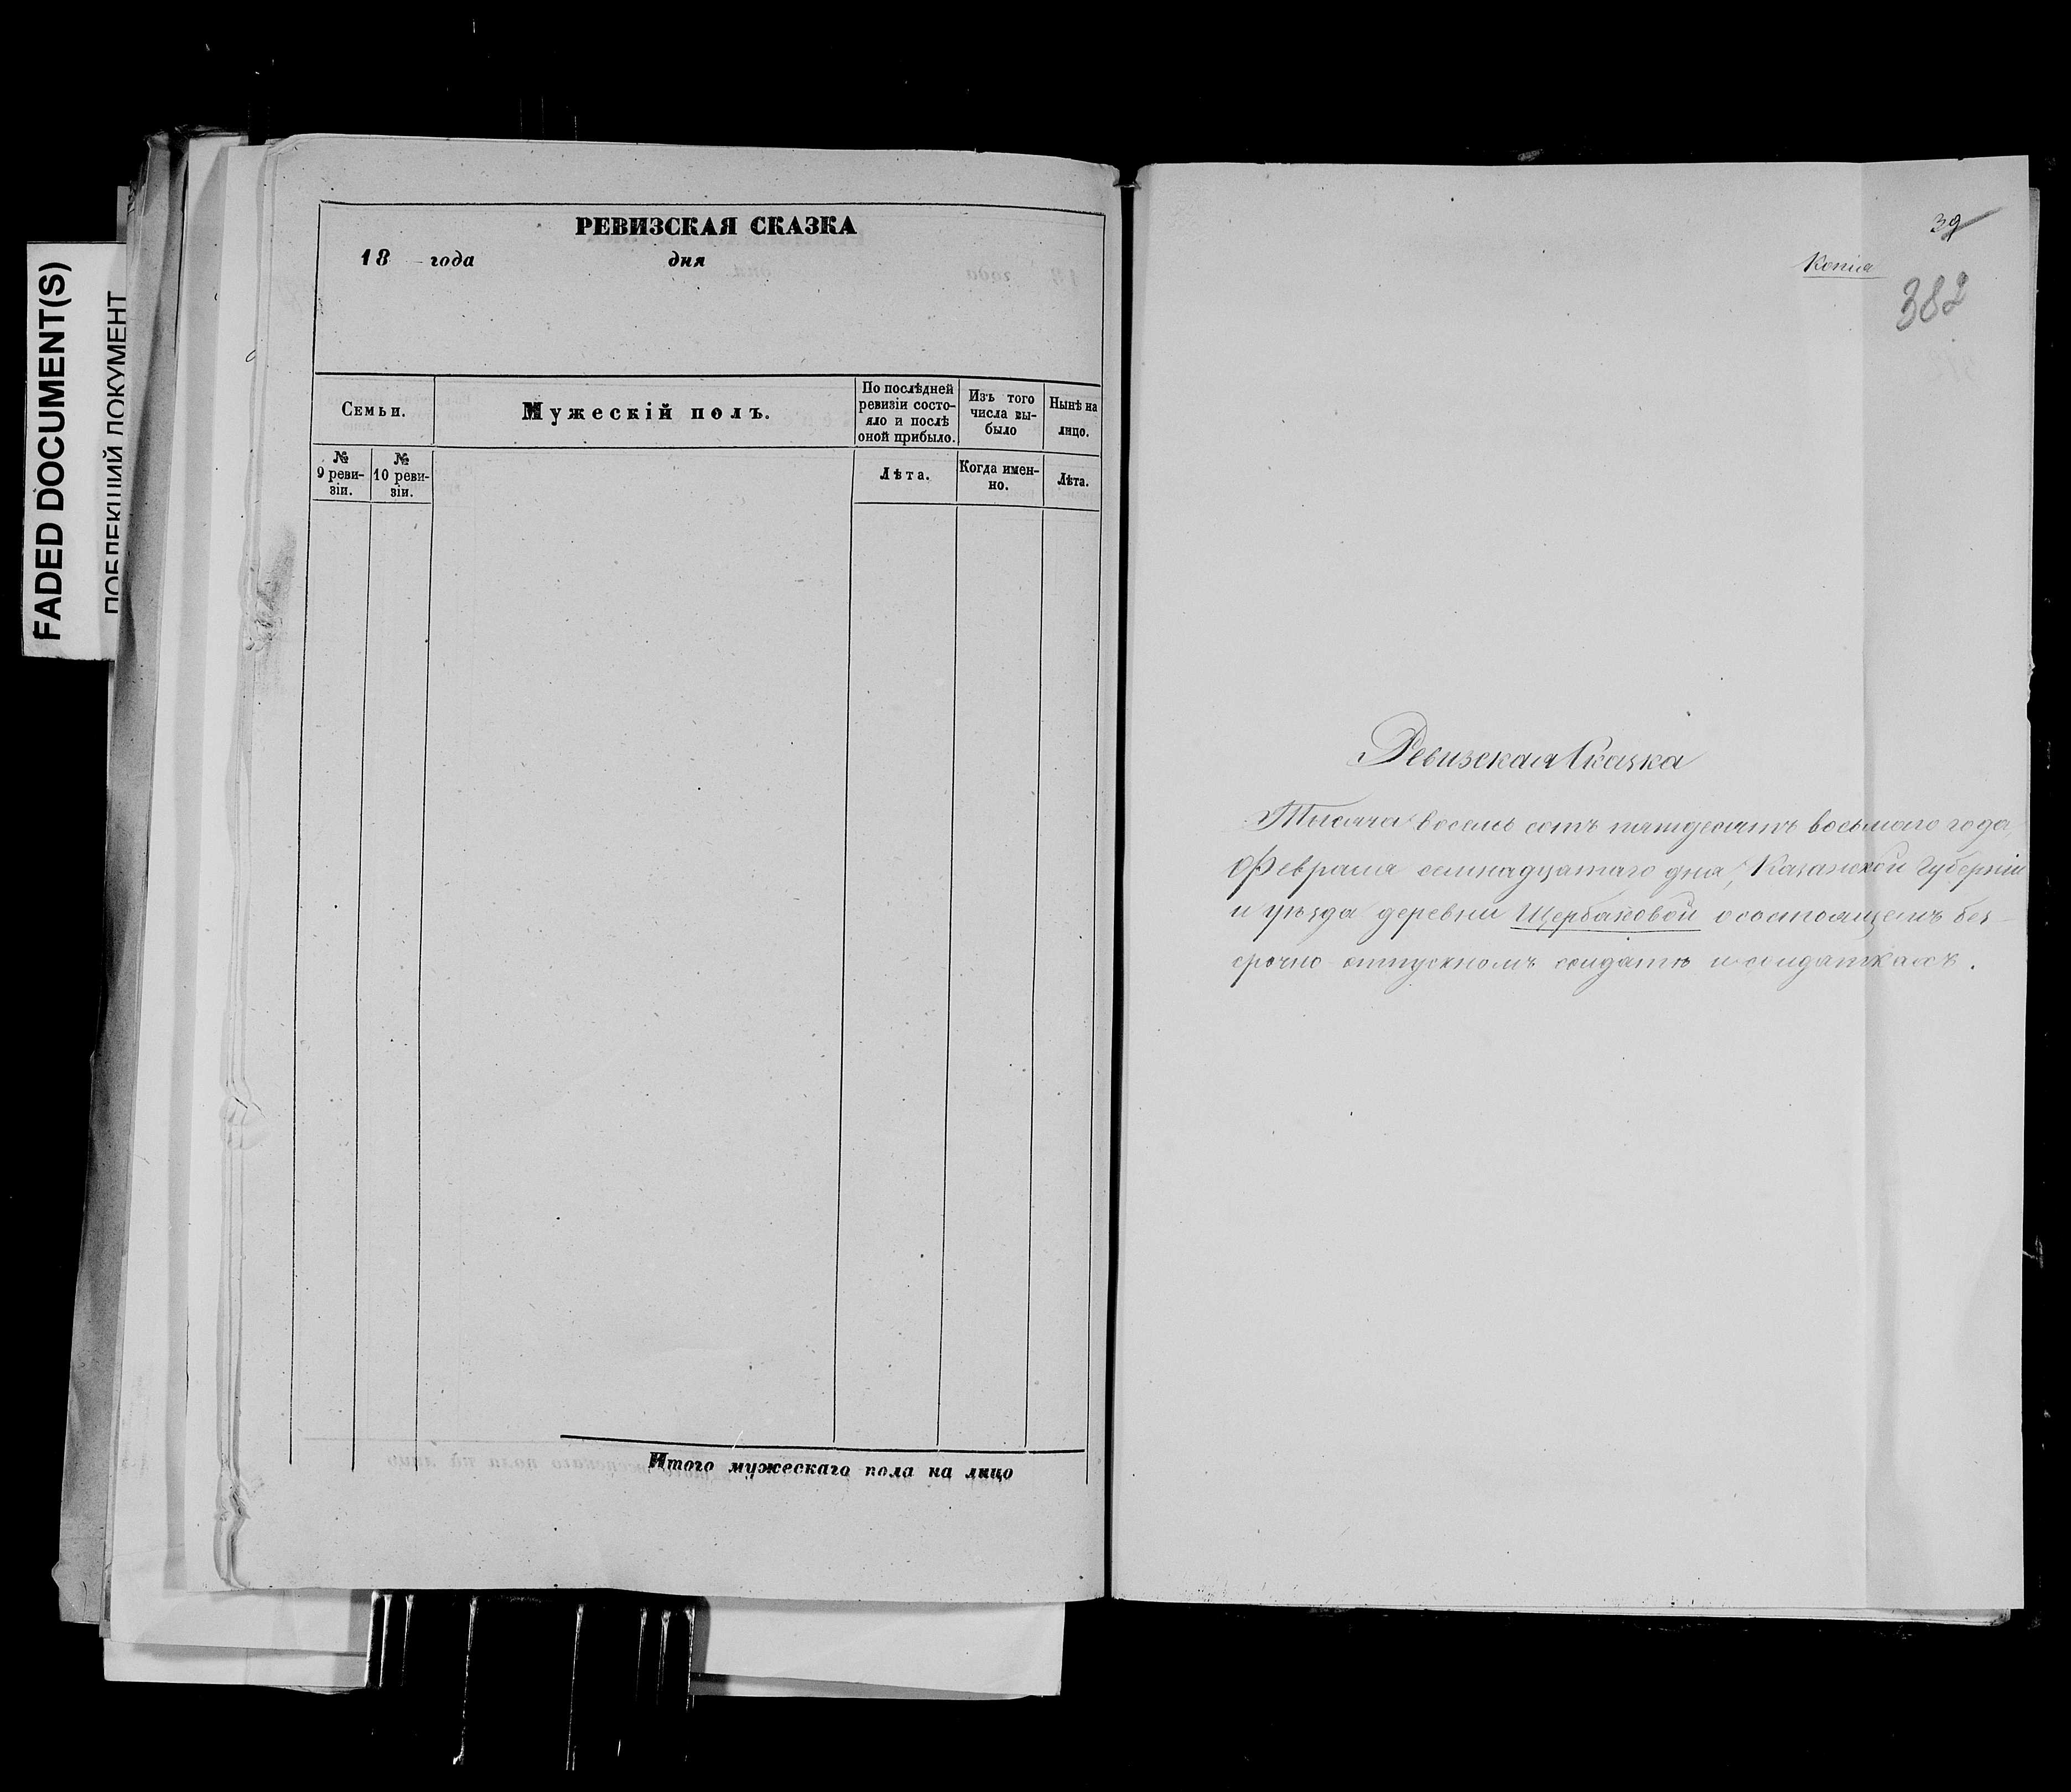 FADED DOCUMENT(S)
ПОБЛЕКШИЙ ДОКУМЕНТ
РЕВИЗСКАЯ СКАЗКА
18 года дня
Семьи.
Мужескій полъ.
По послѣдней ревизіи состо-
яло и послѣ оной прибыло.
Изъ того числа вы-
было
Нынѣ на лицо.
№ 9 реви-
зіи.
№ 10 реви-
зіи.
Лѣта.
Когда имен-
но.
Лѣта.
Итого мужескаго пола на лицо
39
Копия
382
Ревизская Сказка
Тысяча восемь сотъ пятьдесятъ восьмаго года,
Февраля семнадцатаго дня, Казанской Губерніи
и уѣзда деревни Щербаковой о состоящемъ без-
срочно-отпускномъ солдатѣ и солдаткахъ.